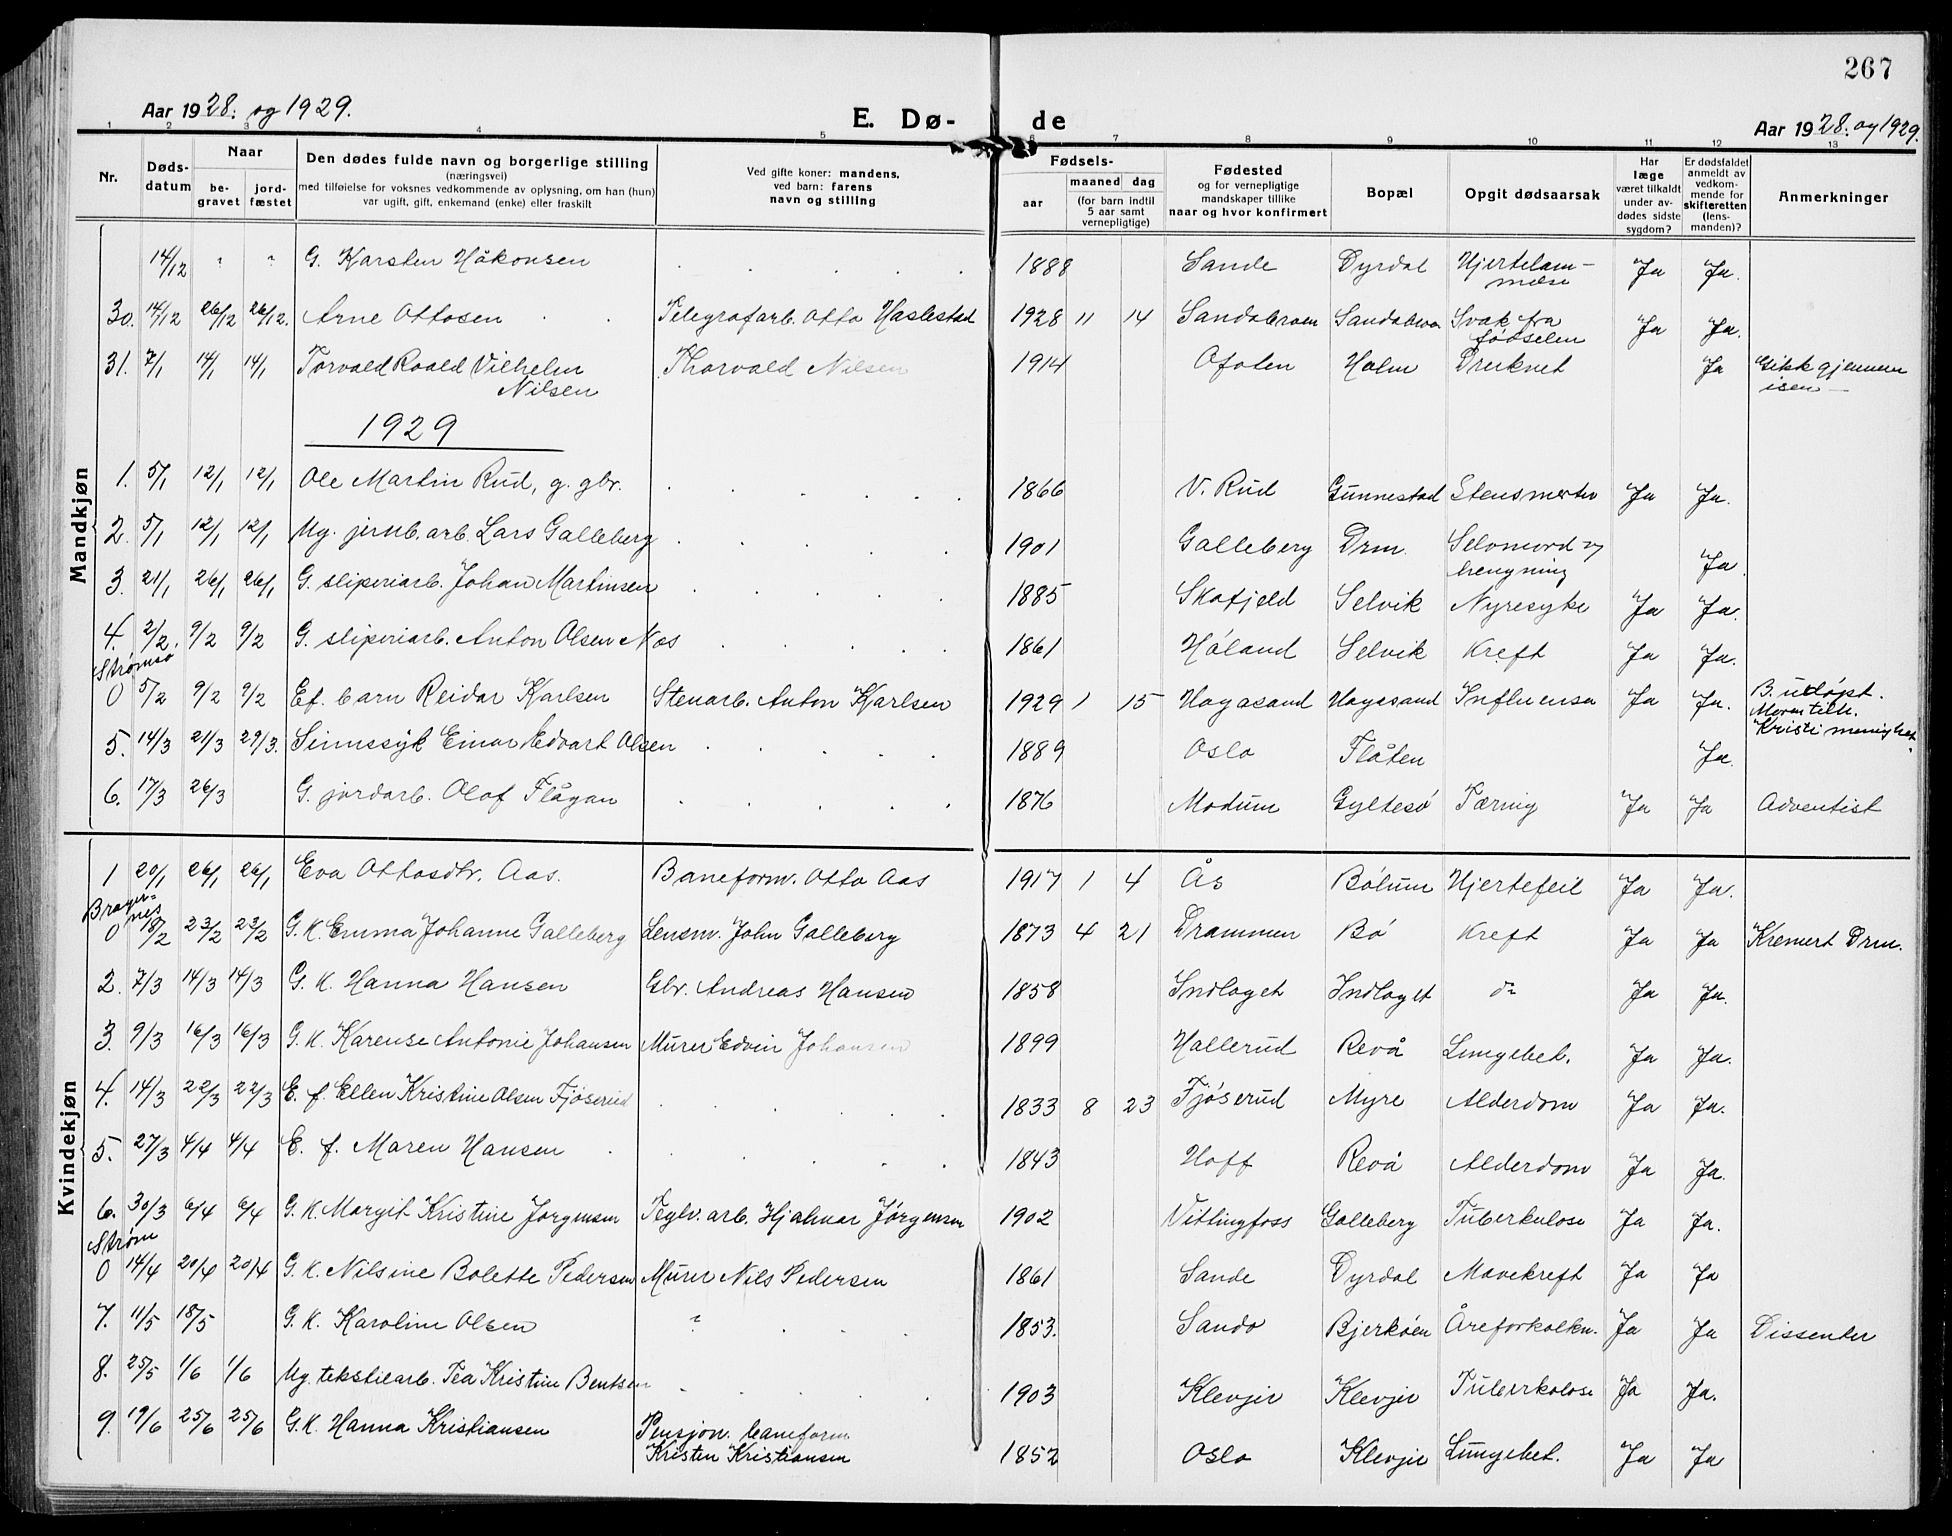 267
Aar 1928. og 1929.
E. Dø- de
Aar 1928. og 1929.
1 2 3 4 5 6 7 8 9 10 11 12 13
Nr. Døds-datum Naar be-gravet jord-fæstet Den dødes fulde navn og borgerlige stilling (næringsvei) med tilføielse for voksnes vedkommende av oplysning, om han (hun) var ugift, gift, enkemand (enke) eller fraskilt Ved gifte koner: mandens, ved barn: farens navn og stilling Fødsels- aar maaned dag (for barn indtil 5 aar samt vernepligtige) Fødested og for vernepligtige mandskaper tillike naar og hvor konfirmert Bopæl Opgit dødsaarsak Har læge været tilkaldt under av-dødes sidste sygdom? Er dødsfaldet anmeldt av vedkom-mende for skifteretten (lens-manden)? Anmerkninger
Mandkjøn
14/12 " " G. Karsten Håkonsen 1888 Sande Dyrdal Hjertelam-melse Ja Ja.
30. 14/12 26/12 26/12. Arne Ottosen Telegrafarb. Otto Haslestad 1928 11 14 Sandebroen Svak fra fødselen Ja Ja.
31. 7/1 14/1 14/1 Torvald Roald Vilhelm Nilsen Thorvald Nilsen 1914 Ofoten Holm Druknet Ja Gikk gjennem isen
1929
1. 5/1 12/1 12/1 Ole Martin Rud, g. gbr. 1866 V. Rud Gunnestad Ja Ja.
2. 5/1 12/1 12/1 Ug. jernb. arb. Lars Galleberg 1901 Galleberg Drm. Selvmord v/ hengning Ja.
3. 21/1 26/1 26/1 G. sliperiarb. Johan Martinsen 1885 Skafjeld Selvik Nyresyke Ja Ja.
4. 2/2. 9/2 9/2 G. sliperiarb. Anton Olsen Nos 1861 Høland Selvik Kreft Ja Ja.
Strømsø
0 5/2 9/2 9/2 Ef. barn Reidar Karlsen Stenarb. Anton Karlsen 1929 1 15 Hagasand Hagasand Influensa Ja Ja. B. utdøpt. Moren tilh. Kristi menighet.
5. 14/3 21/3 29/3. Sinnssyk Einar Edvart Olsen 1889 Oslo Flåten Ja.
6. 17/3 26/3 G. jordarb. Olaf Flågan 1876 Modum Gyltesø Tæring Ja Ja Adventist
Kvindekjøn
1 20/1 26/1 26/1 Eva Ottosdtr. Aas. Baneform. Otto Aas 1917 1 4 Ås Bølum Hjertefeil Ja Ja.
Brager-nes
0 18/2 23/2 23/2 G. K. Emma Johanne Galleberg Lensm. John Galleberg 1873 4 21 Drammen Bø Kreft Ja Ja Kremert Drm.
2. 7/3 14/3 14/3 G. K. Hanna Hansen Gbr. Andreas Hansen 1858 Indlaget Indlaget do Ja Ja.
3. 9/3 16/3 16/3 G. K. Karense Antonie Johansen Murer Edvin Johansen 1899 Hallerud Revå Lungebet. Ja Ja.
4. 14/3 22/3 22/3 E. f. Ellen Kristine Olsen Fjøserud 1833 8 23 Fjøserud Myre Alderdom Ja Ja.
5. 27/3 4/4 4/4 E. f. Maren Hansen 1843 Hoff Revå Alderdom Ja Ja.
6. 30/3 6/4 6/4 G. K. Margit Kristine Jørgensen Teglv. arb. Hjalmar Jørgensen 1902 Vittingfoss Galleberg Tuberkulose Ja Ja.
Strøm
0 14/4 20/4 20/4 G. K. Nilsine Bolette Pedersen Murer Nils Pedersen 1861 Sande Dyrdal Mavekreft Ja Ja
7. 11/5 18/5 G. K. Karoline Olsen " 1853. Sande Bjerkøen Åreforkalkn. Ja Ja Dissenter
8. 25/5 1/6 1/6 Ug. tekstilarb. Tea Kristine Bentsen 1903 Klevjer Klevjer Tuberkulose Ja Ja.
9. 19/6 25/6 25/6 G. K. Hanna Kristiansen Pensjon. baneform. Kristen Kristiansen 1852 Oslo Klevjer Lungebet. Ja Ja